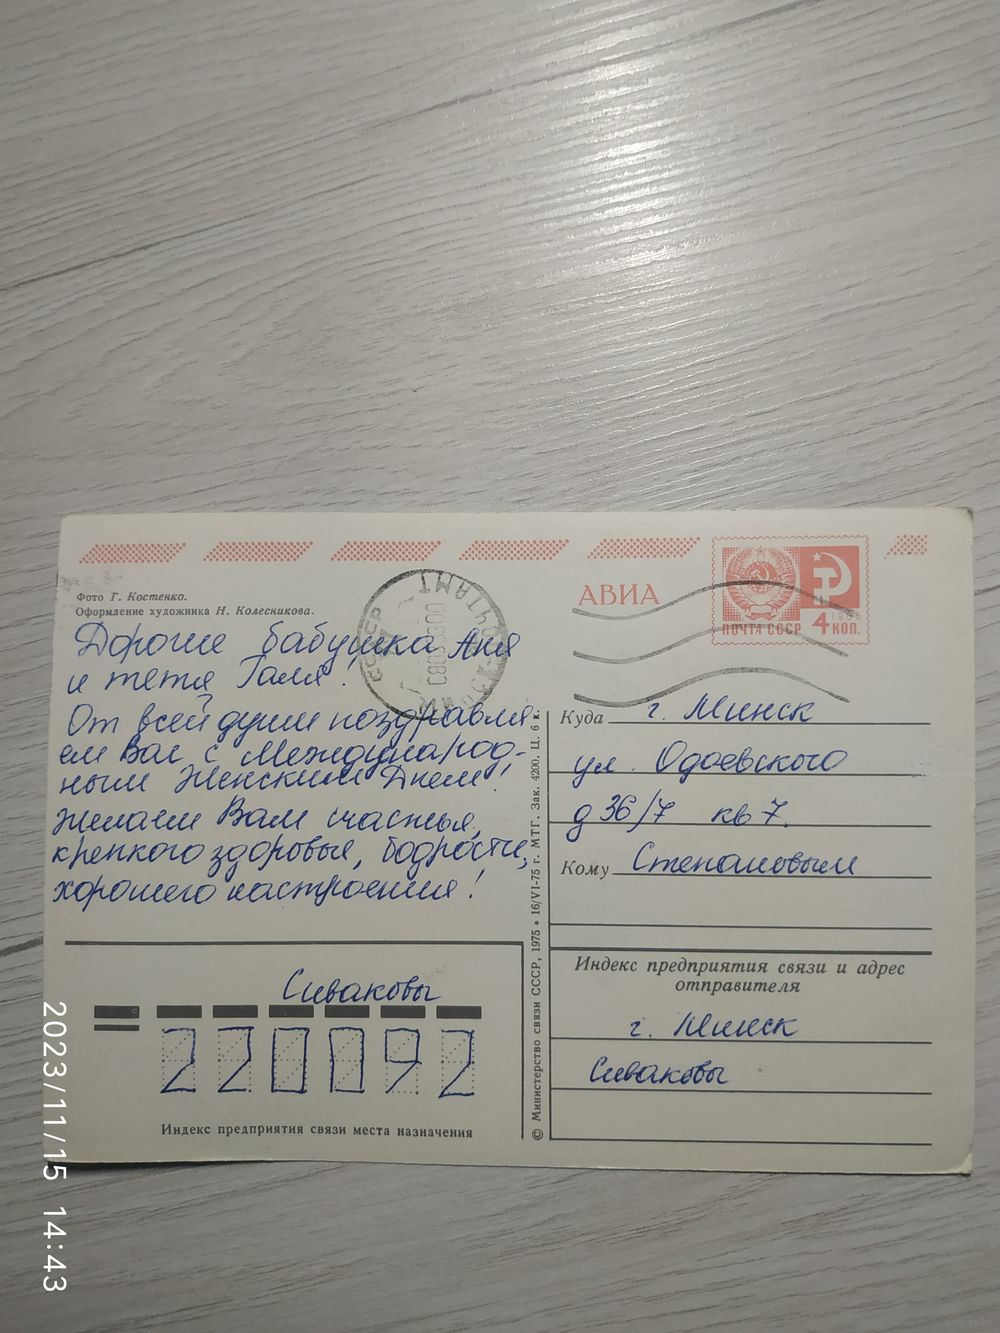 АВИА
ПОЧТА СССР 4 КОП.
1966
Фото Г. Костенко.
Оформление художника Н. Колесникова.
Дорогие бабушка Аня
и тетя Галя!
От всей души поздравля-
ем Вас с Международ-
ным Женским Днем!
Желаем Вам счастья,
крепкого здоровья, бодрости,
хорошего настроения!
Сиваковы
220092
Индекс предприятия связи места назначения
© Министерство связи СССР, 1975 • 16/VI-75 г. МТГ. Зак. 4200. Ц. 6 к.
Куда г. Минск
ул. Одоевского
д 36/7 кв 7.
Кому Степановым
Индекс предприятия связи и адрес
отправителя
г. Минск
Сиваковы
2023/11/15 14:43